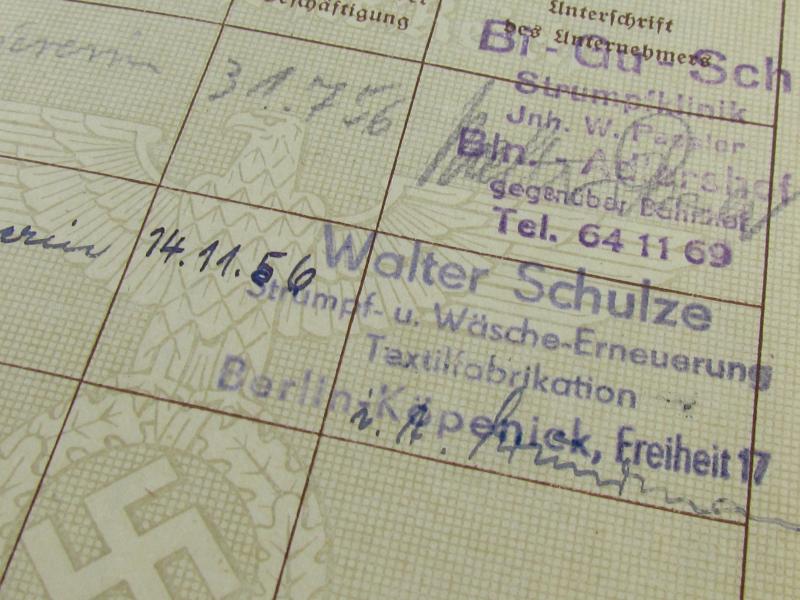 Beschäftigung
Unterschrift
des Unternehmers
31.7.56
Bi-Gu-Sch
Strumpfklinik
Jnh. W.
Bln.-Adlershof
gegenüber Bahnhof
Tel. 64 11 69
14.11.56
Walter Schulze
Strumpf- u. Wäsche-Erneuerung
Textilfabrikation
Berlin-Köpenick, Freiheit 17
i. A.